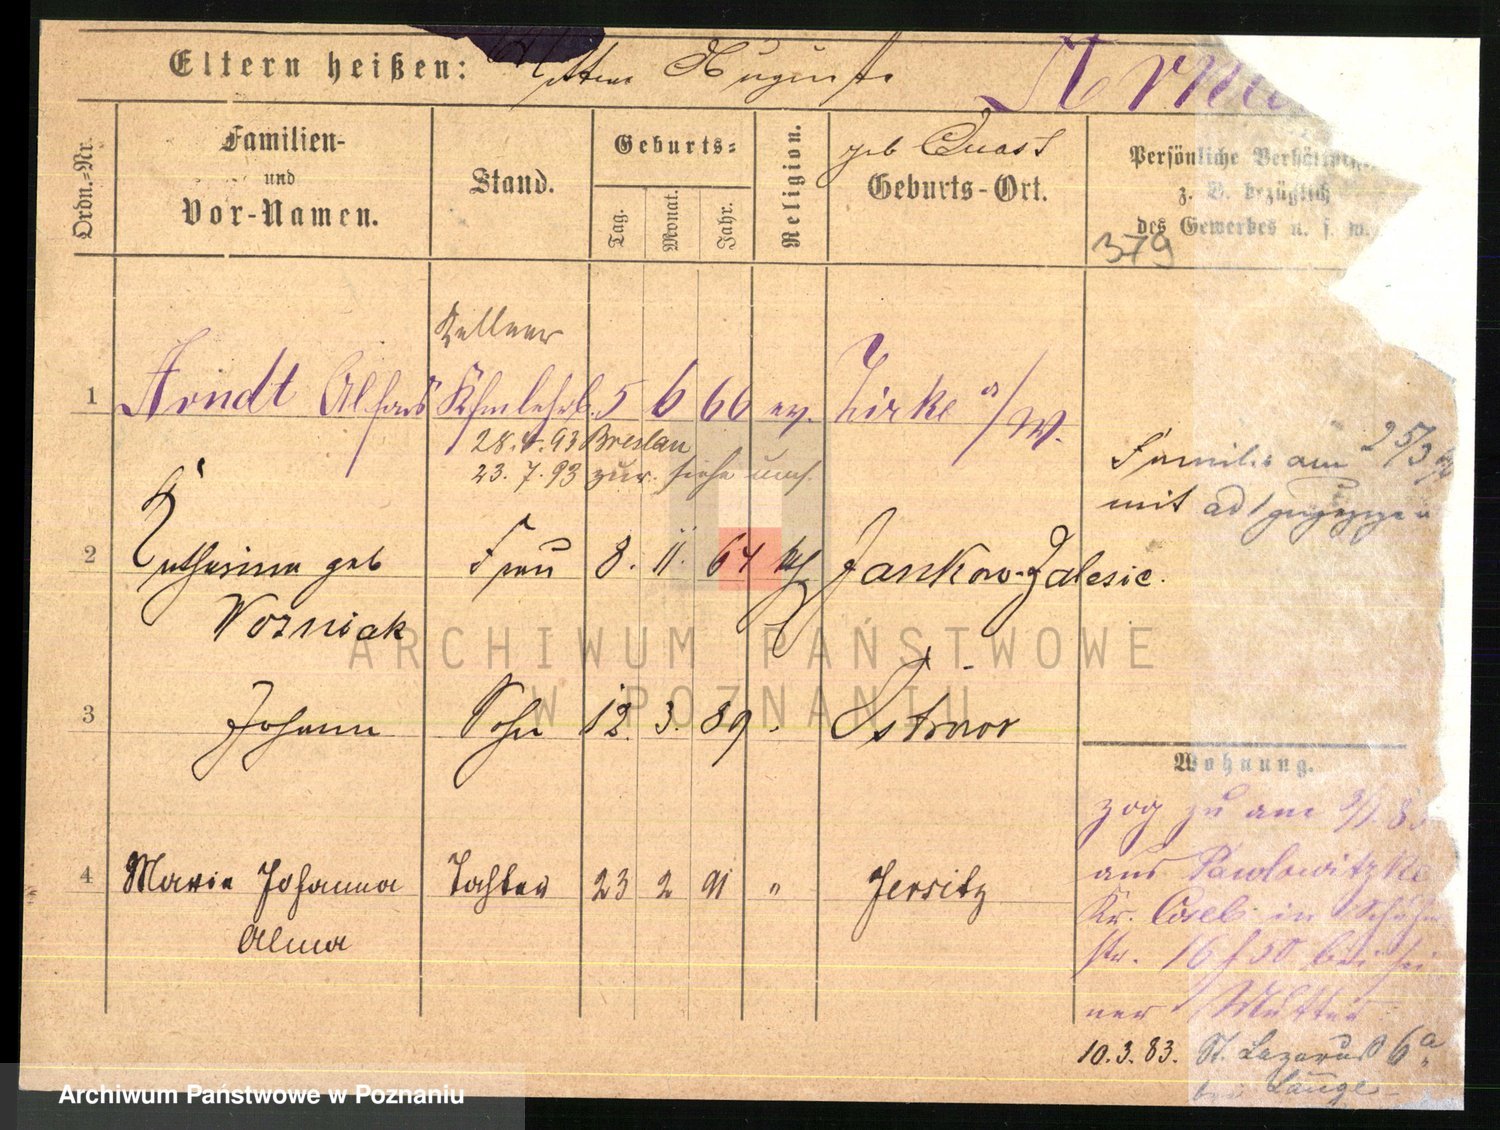 Eltern heißen: Mutter Auguste
geb Quast
Ordn.-Nr.
Familien-
und
Vor-Namen.
Stand.
Geburts-
Tag.
Monat.
Jahr.
Religion.
Geburts-Ort.
Persönliche Verhältnisse
z. B. bezüglich
des Gewerbes u. s. w.
379
Kellner
1 Arndt Alfons Kfmlehrl. 5 6 66 ev. Zirke a/W.
28.4.93 Breslau
23.7.93 zur. siehe umst.
Familie am 25/3
mit
2 Katharina geb Frau 8. 11. 64 kath Jankow-Zalesie.
Wozniak
3 Johann Sohn 12. 3. 89. Ostrow
Wohnung.
zog zu am
aus Pawlowitzke
Kr. Cosel in
str. 16 bei sei
ner Mutter
4 Marie Johanna Tochter 23 2 91 " Jersitz
Alma
10.3.83. St. Lazarus 6a
bei Lange
ARCHIWUM PAŃSTWOWE
W POZNANIU
Archiwum Państwowe w Poznaniu